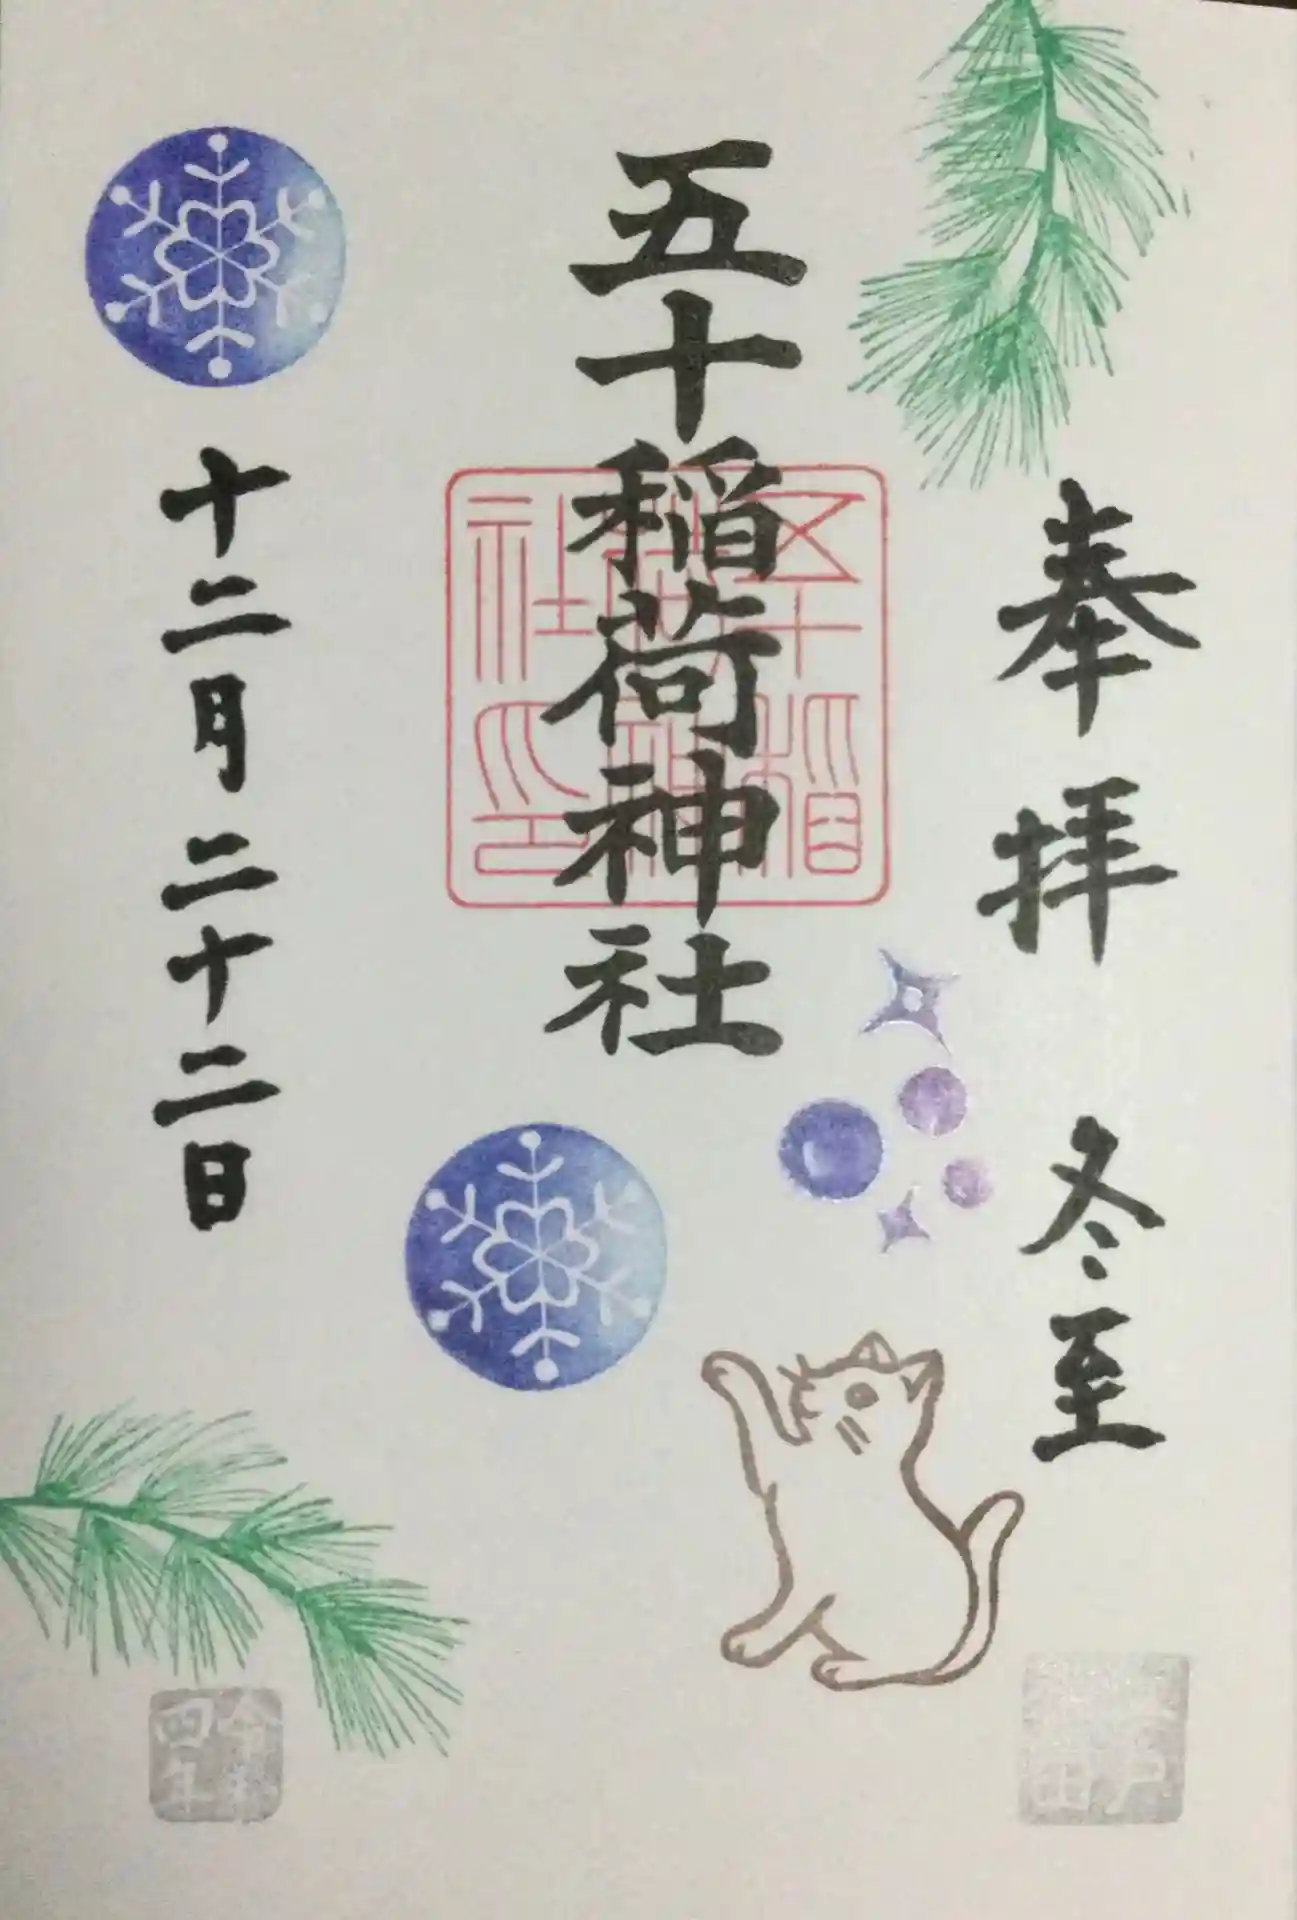 奉拝 冬至
五十稲荷神社
五十稲荷神社印
十二月二十二日
令和四年